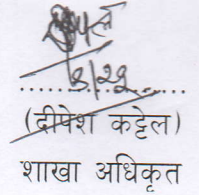 ५/२५
....................
(दीपेश कट्टेल)
शाखा अधिकृत